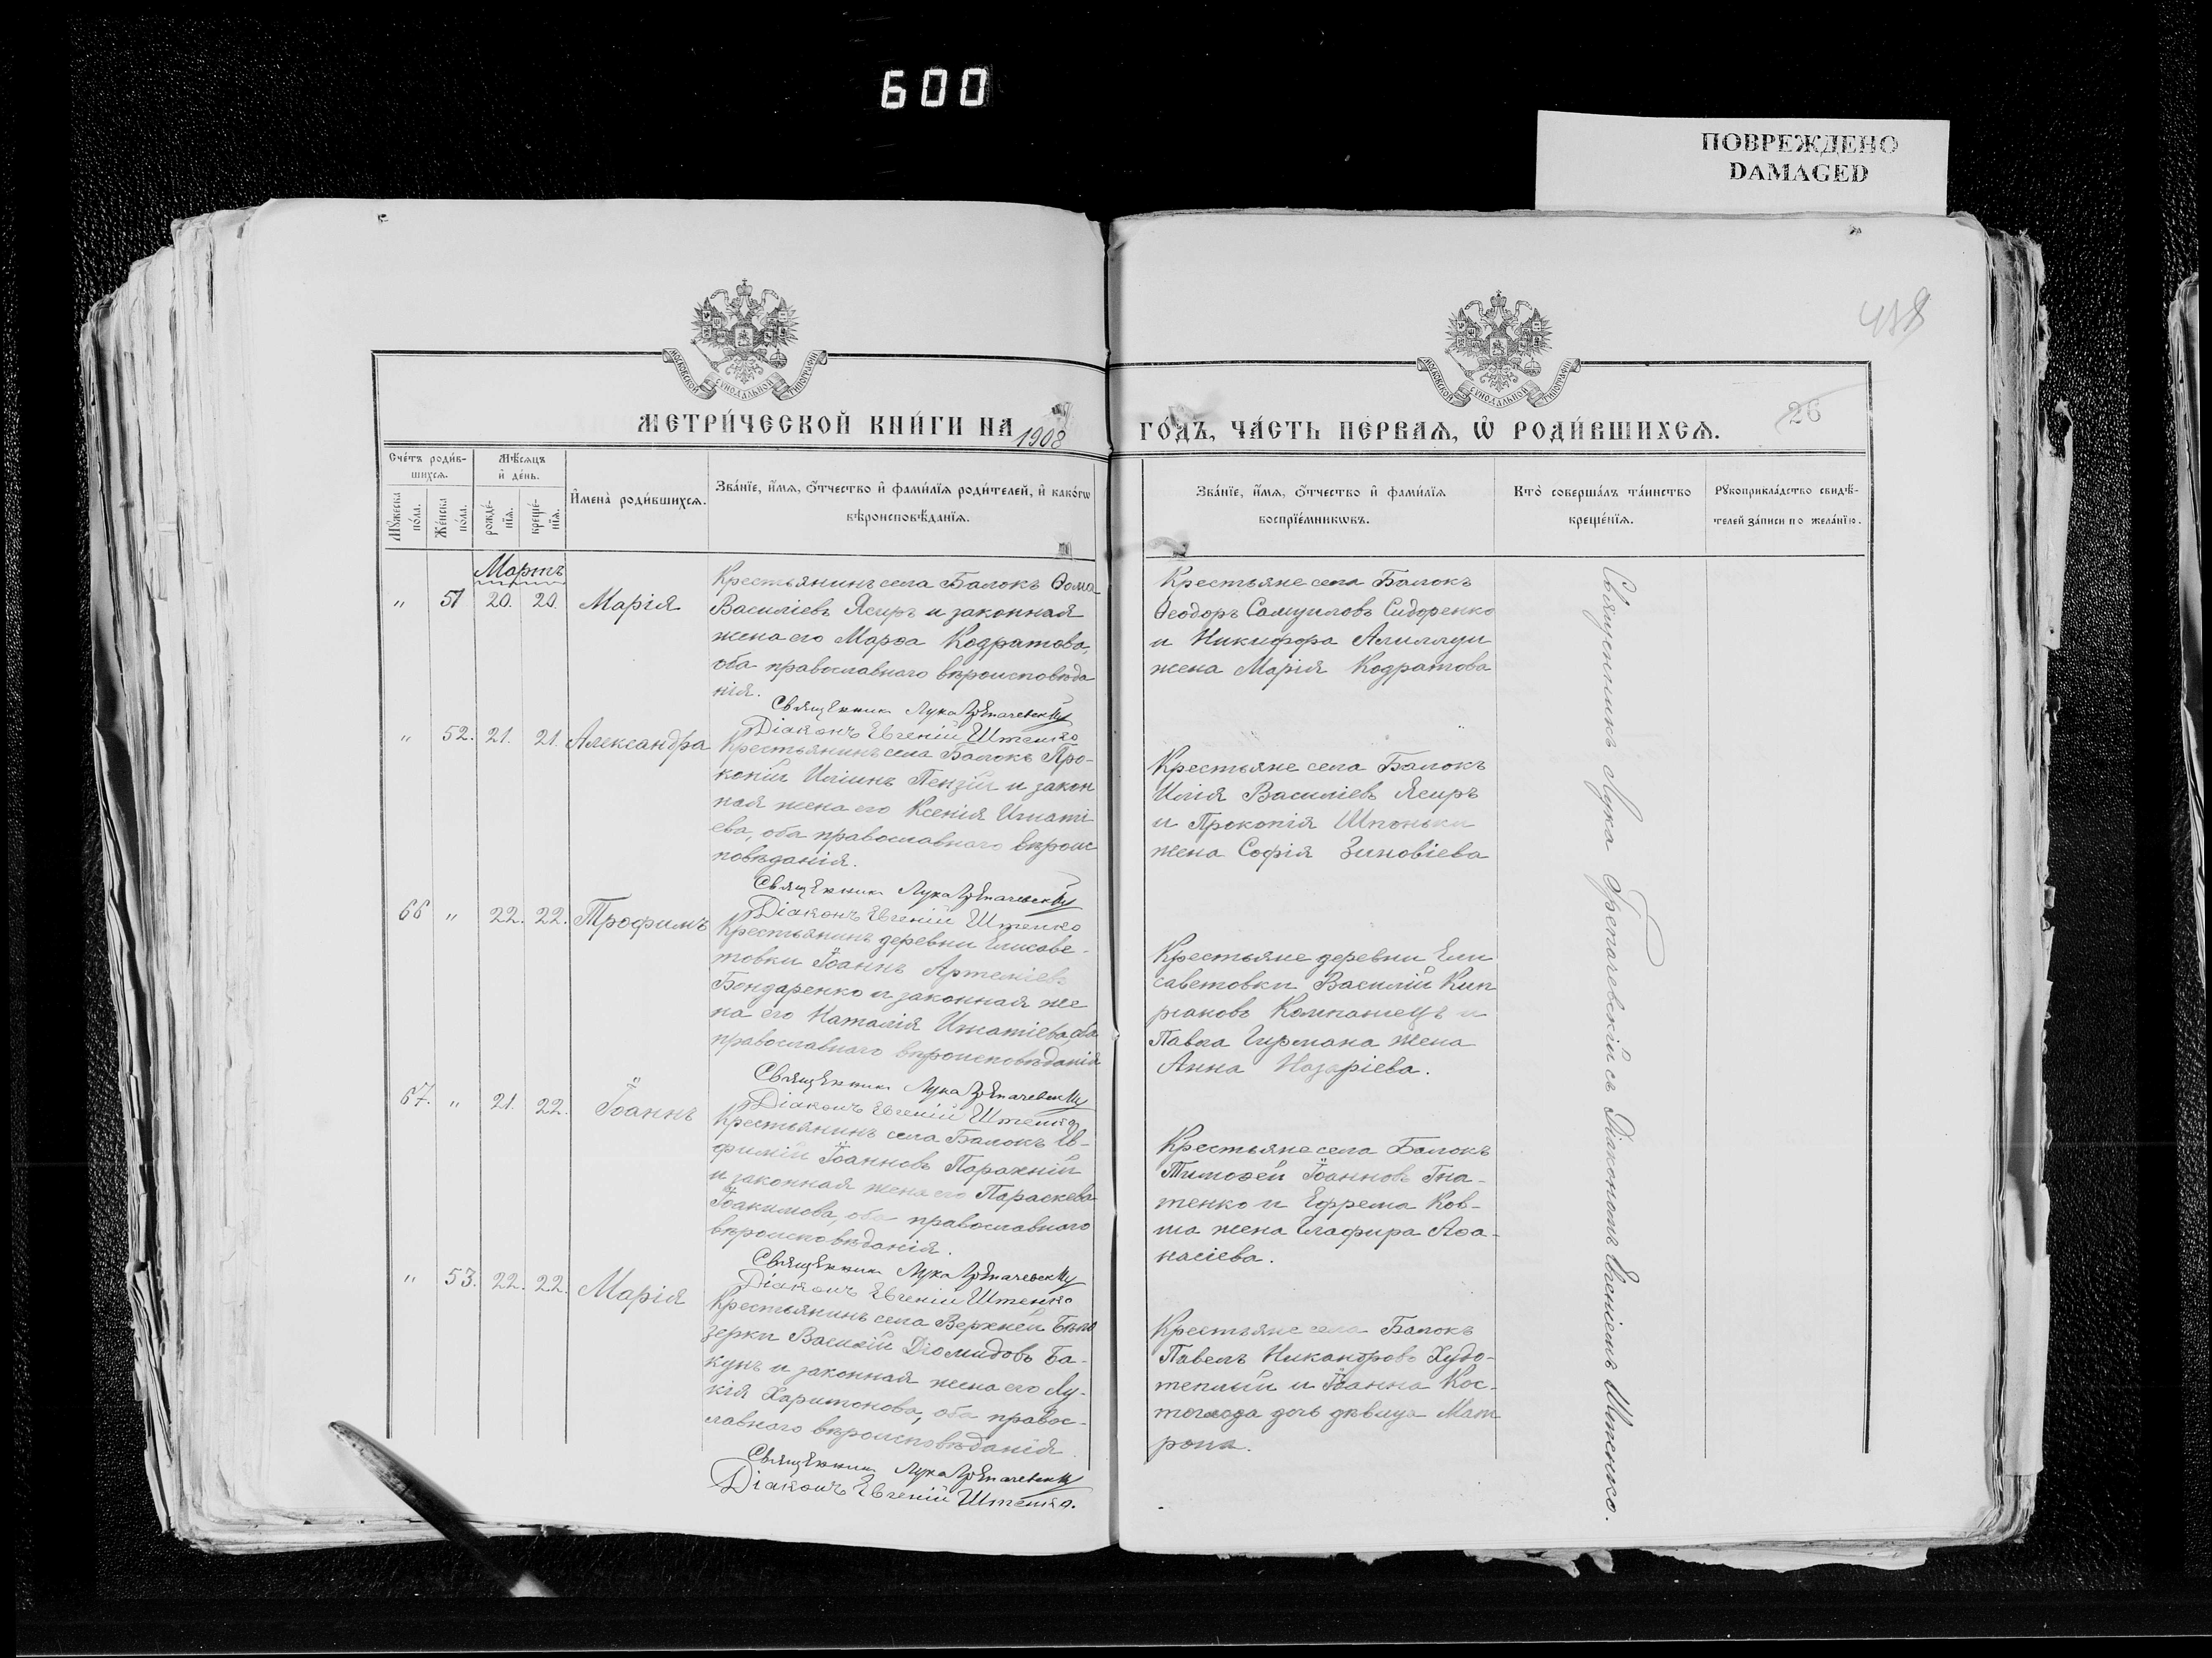 600
ПОВРЕЖДЕНО
DAMAGED
МОСКОВСКОЙ СУНОДАЛЬНОЙ ТИПОГРАФІИ
МОСКОВСКОЙ СУНОДАЛЬНОЙ ТИПОГРАФІИ
МЕТРИ́ЧЕСКОЙ КНИ́ГИ НА 1908
ГО́ДЪ, ЧА́СТЬ ПЕ́РВАѦ, Ѡ РОДИ́ВШИХСѦ.
26
Сче́тъ роди́в-
шихсѧ.
Мꙋ́жеска по́ла.
Же́нска по́ла.
Мѣ́сѧцъ
и҆ де́нь.
рожде́-
нїѧ.
креще́-
нїѧ.
И҆мена̀ роди́вшихсѧ.
Зва́нїе, и҆́мѧ, ѻ҆́тчество и҆ фами́лїѧ роди́телей, и҆ како́гѡ
вѣроисповѣ́данїѧ.
Зва́нїе, и҆́мѧ, ѻ҆́тчество и҆ фами́лїѧ
воспрїе́мникѡвъ.
Кто̀ соверша́лъ та́инство
креще́нїѧ.
Рꙋкоприкла́дство свидѣ́-
телей за́писи по жела́нїю.
Мартъ
" 51 20. 20. Марія
Крестьянинъ села Балокъ Ѳома
Василіевъ Ясиръ и законная
жена его Марѳа Кодратова,
оба православнаго вѣроисповѣда
нія.
Священникъ Лука Грепачевскій
Діаконъ Евгеній Штенко
Крестьяне села Балокъ
Ѳеодоръ Самуиловъ Сидоренко
и Никифора Алиллуи
жена Марія Кодратова
" 52. 21. 21. Александра
Крестьянинъ села Балокъ Про-
копій Иліинъ Пензій и закон
ная жена его Ксенія Игнаті
ева, оба православнаго вѣроис
повѣданія.
Священникъ Лука Грепачевскій
Діаконъ Евгеній Штенко
Крестьяне села Балокъ
Илія Василіевъ Ясиръ
и Прокопія Шпоньки
жена Софія Зиновіева
66 " 22. 22. Трофимъ
Крестьянинъ деревни Елисаве-
товки Іоаннъ Артеміевъ
Бондаренко и законная же
на его Наталія Игнатіева, оба
православнаго вѣроисповѣданія
Священникъ Лука Грепачевскій
Діаконъ Евгеній Штенко
Крестьяне деревни Ели
саветовки Василій Кип
ріановъ Компаніецъ и
Павла Гирмана жена
Анна Назаріева.
67. " 21. 22. Іоаннъ
Крестьянинъ села Балокъ Ев-
фимій Іоанновъ Парахній
и законная жена его Параскева
Іоакимова, оба православнаго
вѣроисповѣданія.
Священникъ Лука Грепачевскій
Діаконъ Евгеній Штенко
Крестьяне села Балокъ
Тимоѳей Іоанновъ Гна-
тенко и Ефрема Ков-
ша жена Глафира Аѳа-
насіева.
" 53. 22. 22. Марія
Крестьянинъ села Верхней Бѣло
зерки Василій Діомидовъ Ба-
кунъ и законная жена его Лу-
кія Харитонова, оба правос-
лавнаго вѣроисповѣданія
Священникъ Лука Грепачевскій
Діаконъ Евгеній Штенко.
Крестьяне села Балокъ
Павелъ Никаноровъ Худо-
теплый и Іоанна Кос-
тоглода дочь дѣвица Мат
рона.
Священникъ Лука Грепачевскій съ Діакономъ Евгеніемъ Штенко.